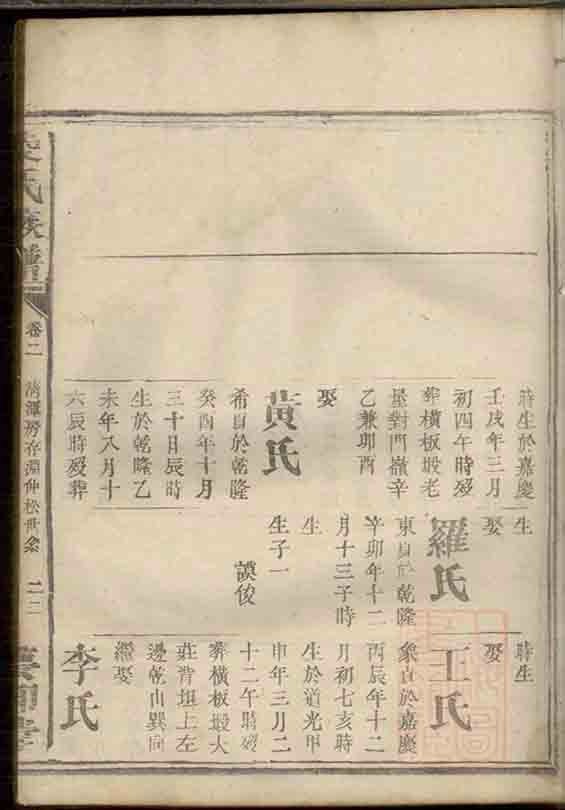 時生於嘉慶
壬戌年三月
初四午時歿
葬橫板塅老
屋對門嶺辛
乙兼卯酉
娶
黃氏
希自於乾隆
癸酉年十月
三十日辰時
生於乾隆乙
未年八月十
六辰時歿葬
生
娶
羅氏
東自於乾隆
辛卯年十二
月十三子時
生
生子一
謨俊
時生
娶
王氏
象自於嘉慶
丙辰年十二
月初七亥時
生於道光甲
申年三月二
十二午時歿
葬橫板塅大
莊背垣上左
邊乾山巽向
繼娶
李氏
氏族譜
卷二
清潭房存淵仲松世系
二三